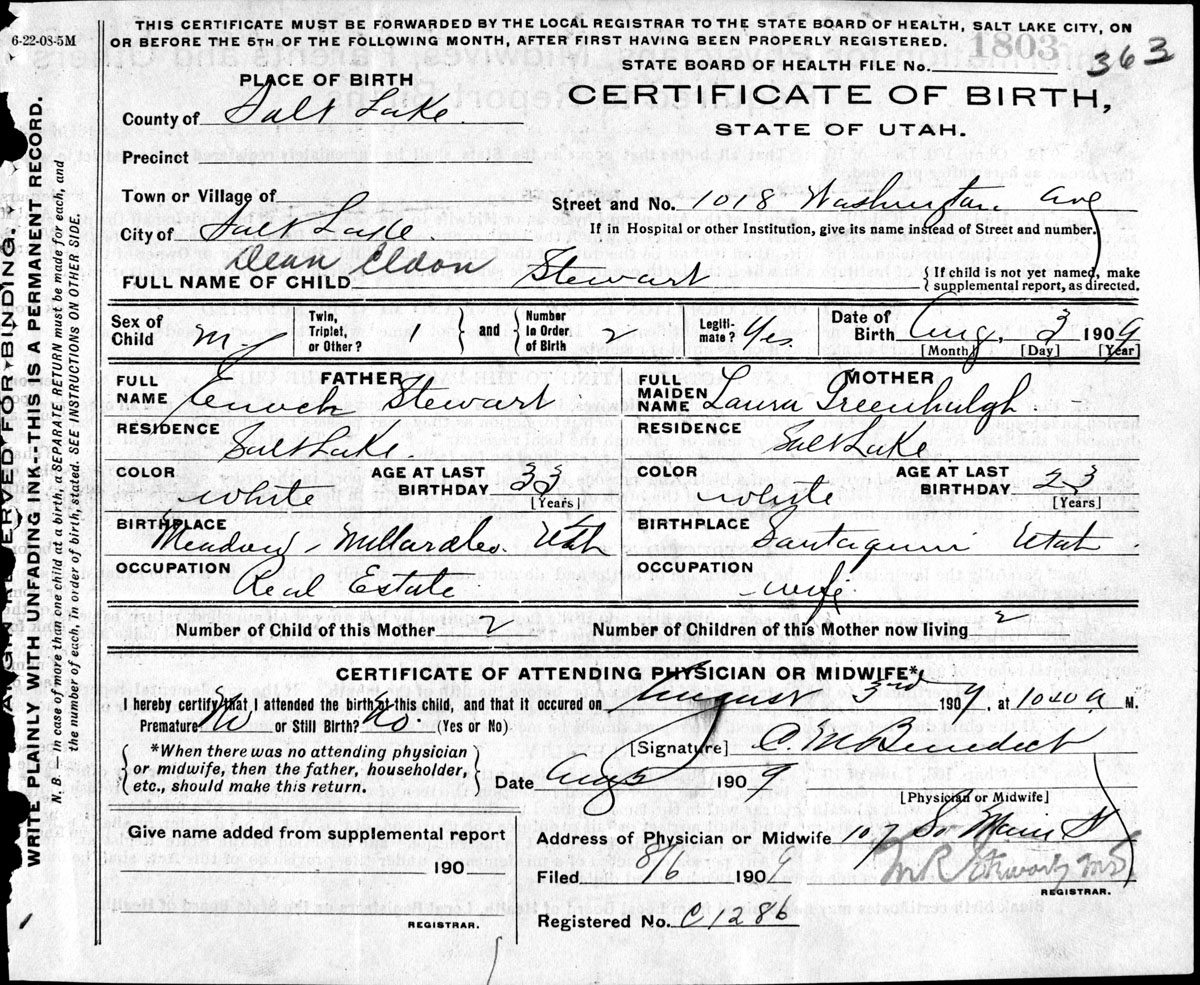 THIS CERTIFICATE MUST BE FORWARDED BY THE LOCAL REGISTRAR TO THE STATE BOARD OF HEALTH, SALT LAKE CITY, ON
OR BEFORE THE 5TH OF THE FOLLOWING MONTH, AFTER FIRST HAVING BEEN PROPERLY REGISTERED.
6-22-08-5M
1803
363
PLACE OF BIRTH
STATE BOARD OF HEALTH FILE No.
County of Salt Lake
CERTIFICATE OF BIRTH,
STATE OF UTAH.
Precinct
Town or Village of
Street and No. 1018 Washington Ave
City of Salt Lake
If in Hospital or other Institution, give its name instead of Street and number.
FULL NAME OF CHILD Dean Eldon Stewart
If child is not yet named, make
supplemental report, as directed.
Sex of Child M. Twin, Triplet, or Other? 1 and Number in Order of Birth 2 Legiti-mate? Yes. Date of Birth Aug. 3 1909
[Month] [Day] [Year]
FATHER
FULL NAME Enoch Stewart
RESIDENCE Salt Lake.
COLOR white AGE AT LAST BIRTHDAY 33 [Years]
BIRTHPLACE Meadow, Millard Co. Utah
OCCUPATION Real Estate.
MOTHER
FULL MAIDEN NAME Laura Greenhalgh
RESIDENCE Salt Lake
COLOR white AGE AT LAST BIRTHDAY 23 [Years]
BIRTHPLACE Santaquin Utah
OCCUPATION wife
Number of Child of this Mother 2 Number of Children of this Mother now living 2
CERTIFICATE OF ATTENDING PHYSICIAN OR MIDWIFE*
I hereby certify that I attended the birth of this child, and that it occured on August 3rd 1909, at 1040 a M.
Premature No or Still Birth? No. (Yes or No)
*When there was no attending physician
or midwife, then the father, householder,
etc., should make this return.
[Signature] C. M. Benedict
Date Aug 5 1909
[Physician or Midwife]
Give name added from supplemental report
190
REGISTRAR.
Address of Physician or Midwife 107 So Main St
Filed 8/6 1909
REGISTRAR.
Registered No. C1286
MARGIN RESERVED FOR BINDING.
WRITE PLAINLY WITH UNFADING INK--THIS IS A PERMANENT RECORD.
N.B.—In case of more than one child at a birth, a SEPARATE RETURN must be made for each, and
the number of each, in order of birth, stated. SEE INSTRUCTIONS ON OTHER SIDE.